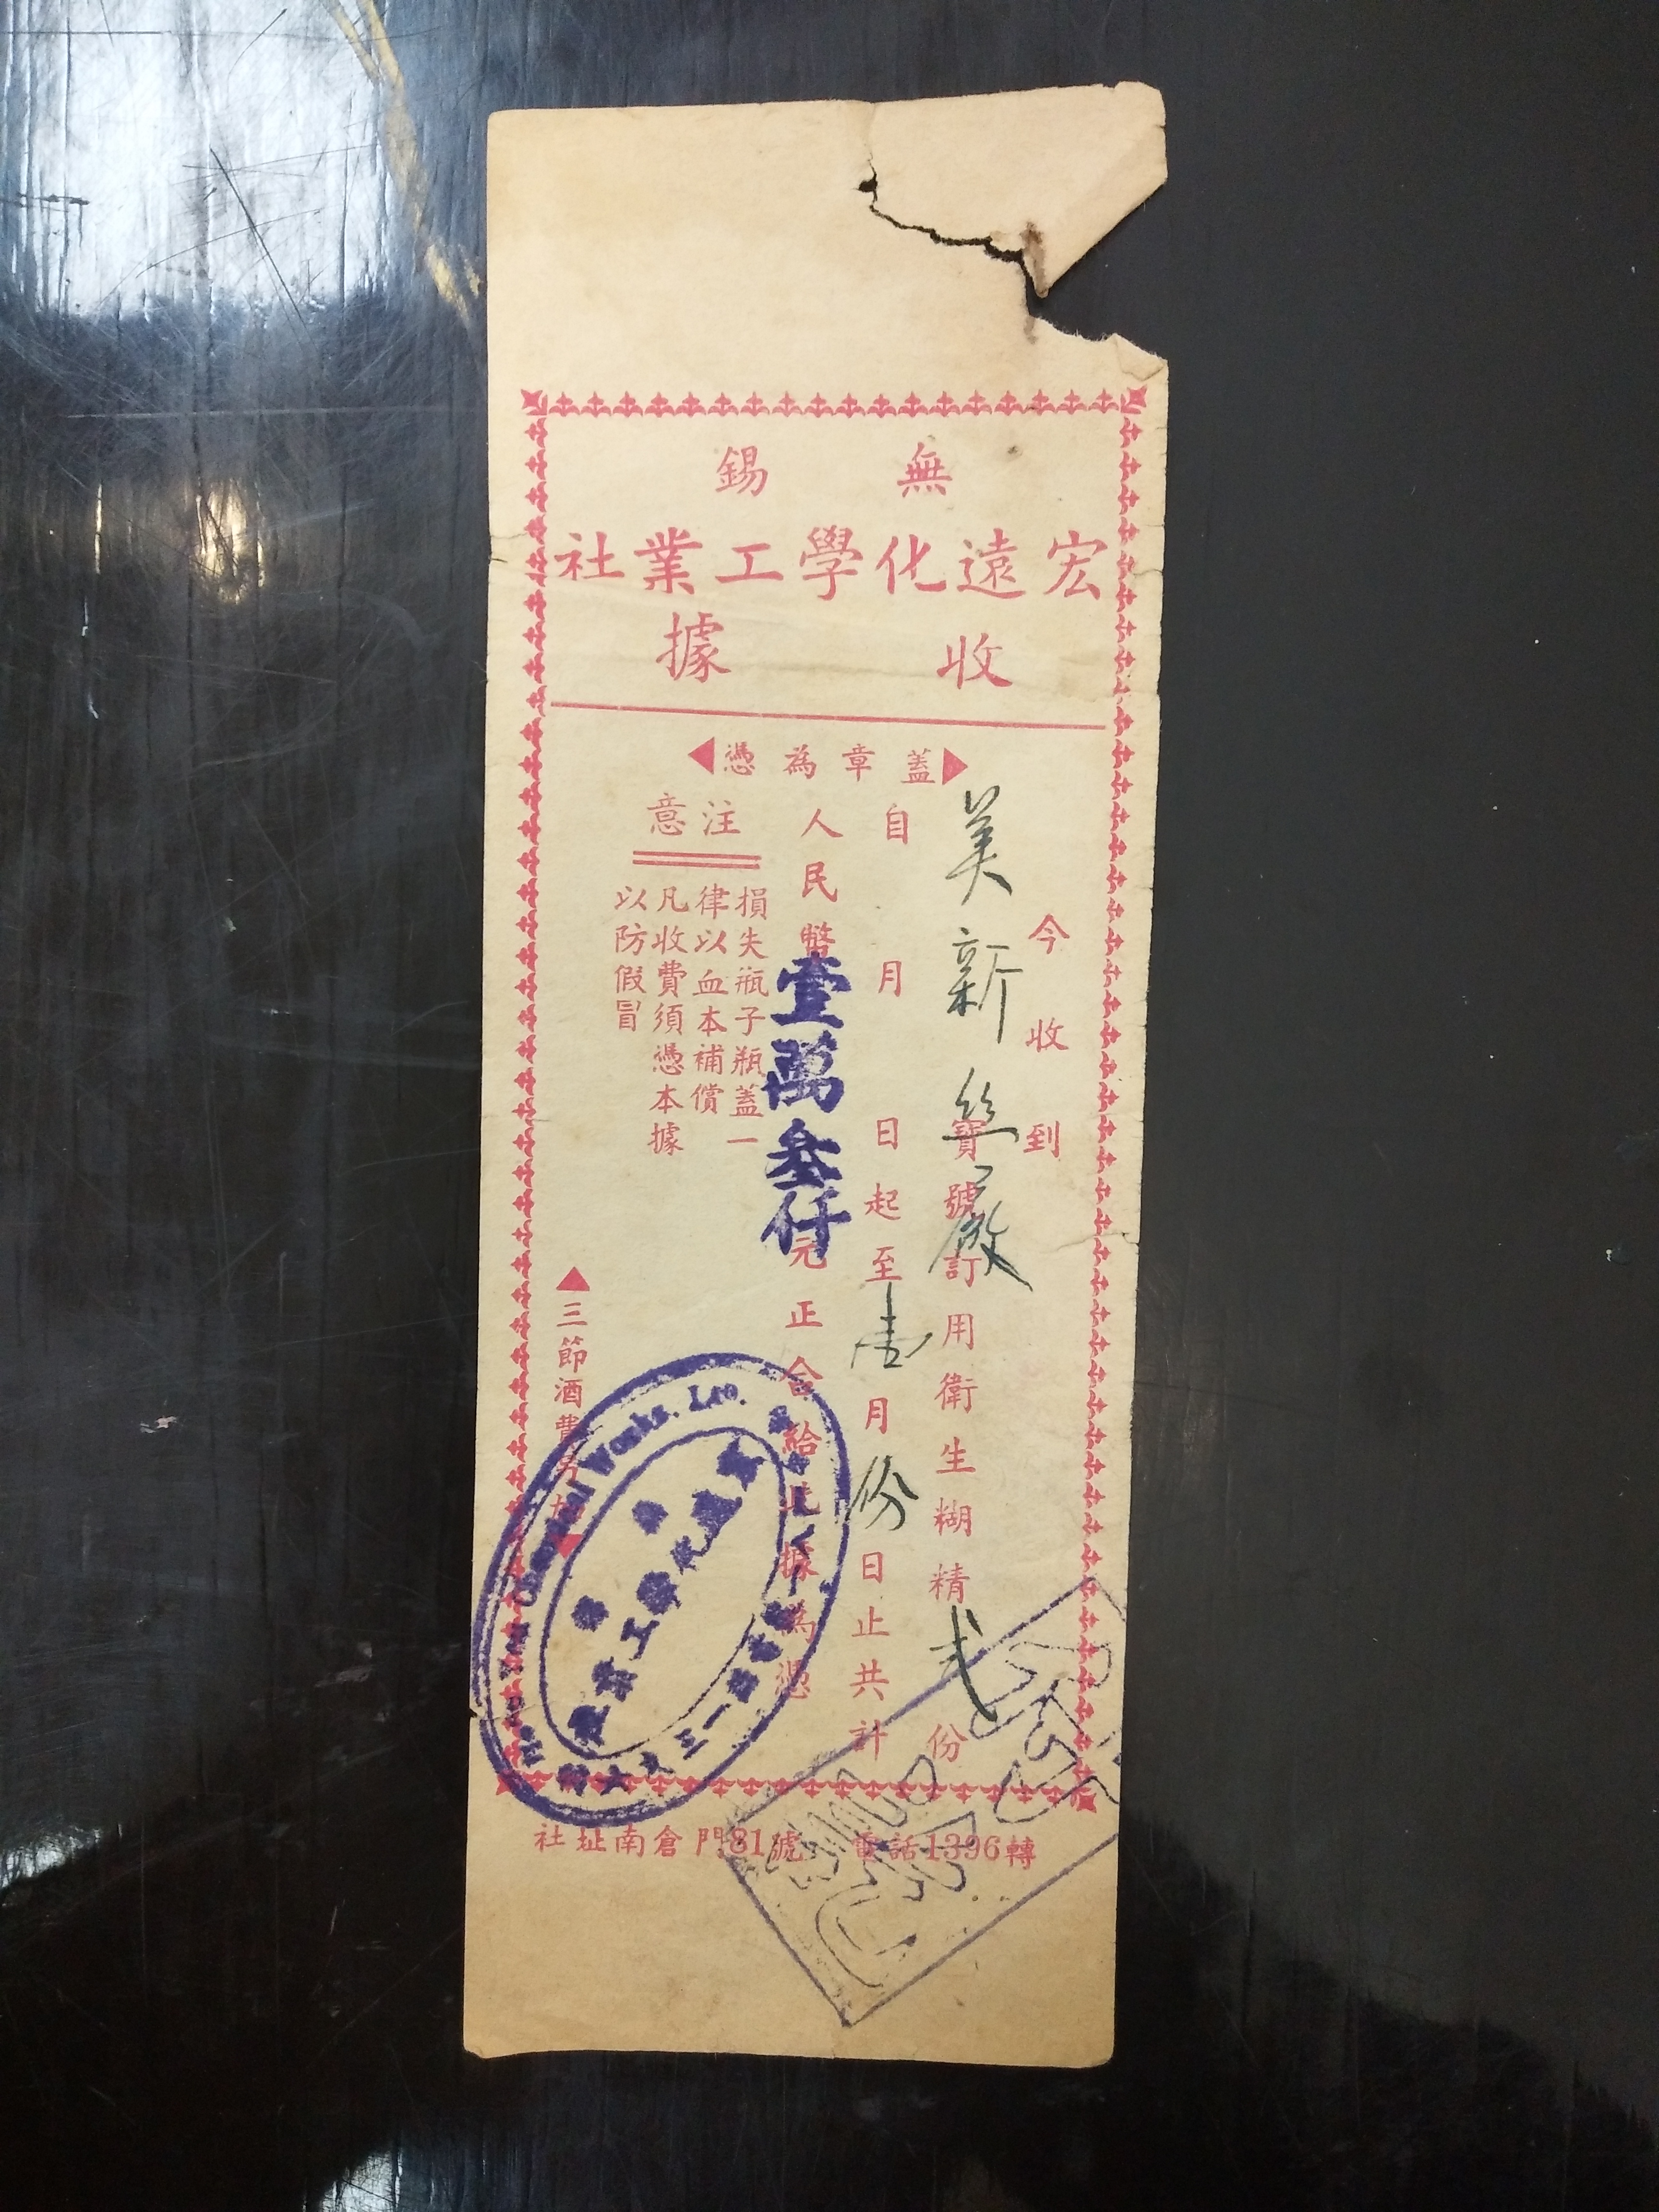 無錫
宏遠化學工業社
收據
蓋章為憑
今收到
美新絲厰寶號訂用衛生糊精弍份
自 月 日起至壹月份日止共計
人民幣壹萬叁仟元正合給此據為憑
注意
損失瓶子瓶蓋一
律以血本補償
凡收費須憑本據
以防假冒
三節酒費另加
Chemical Works. Ltd.
宏遠化學工業社
社址南倉門81號 電話1396轉